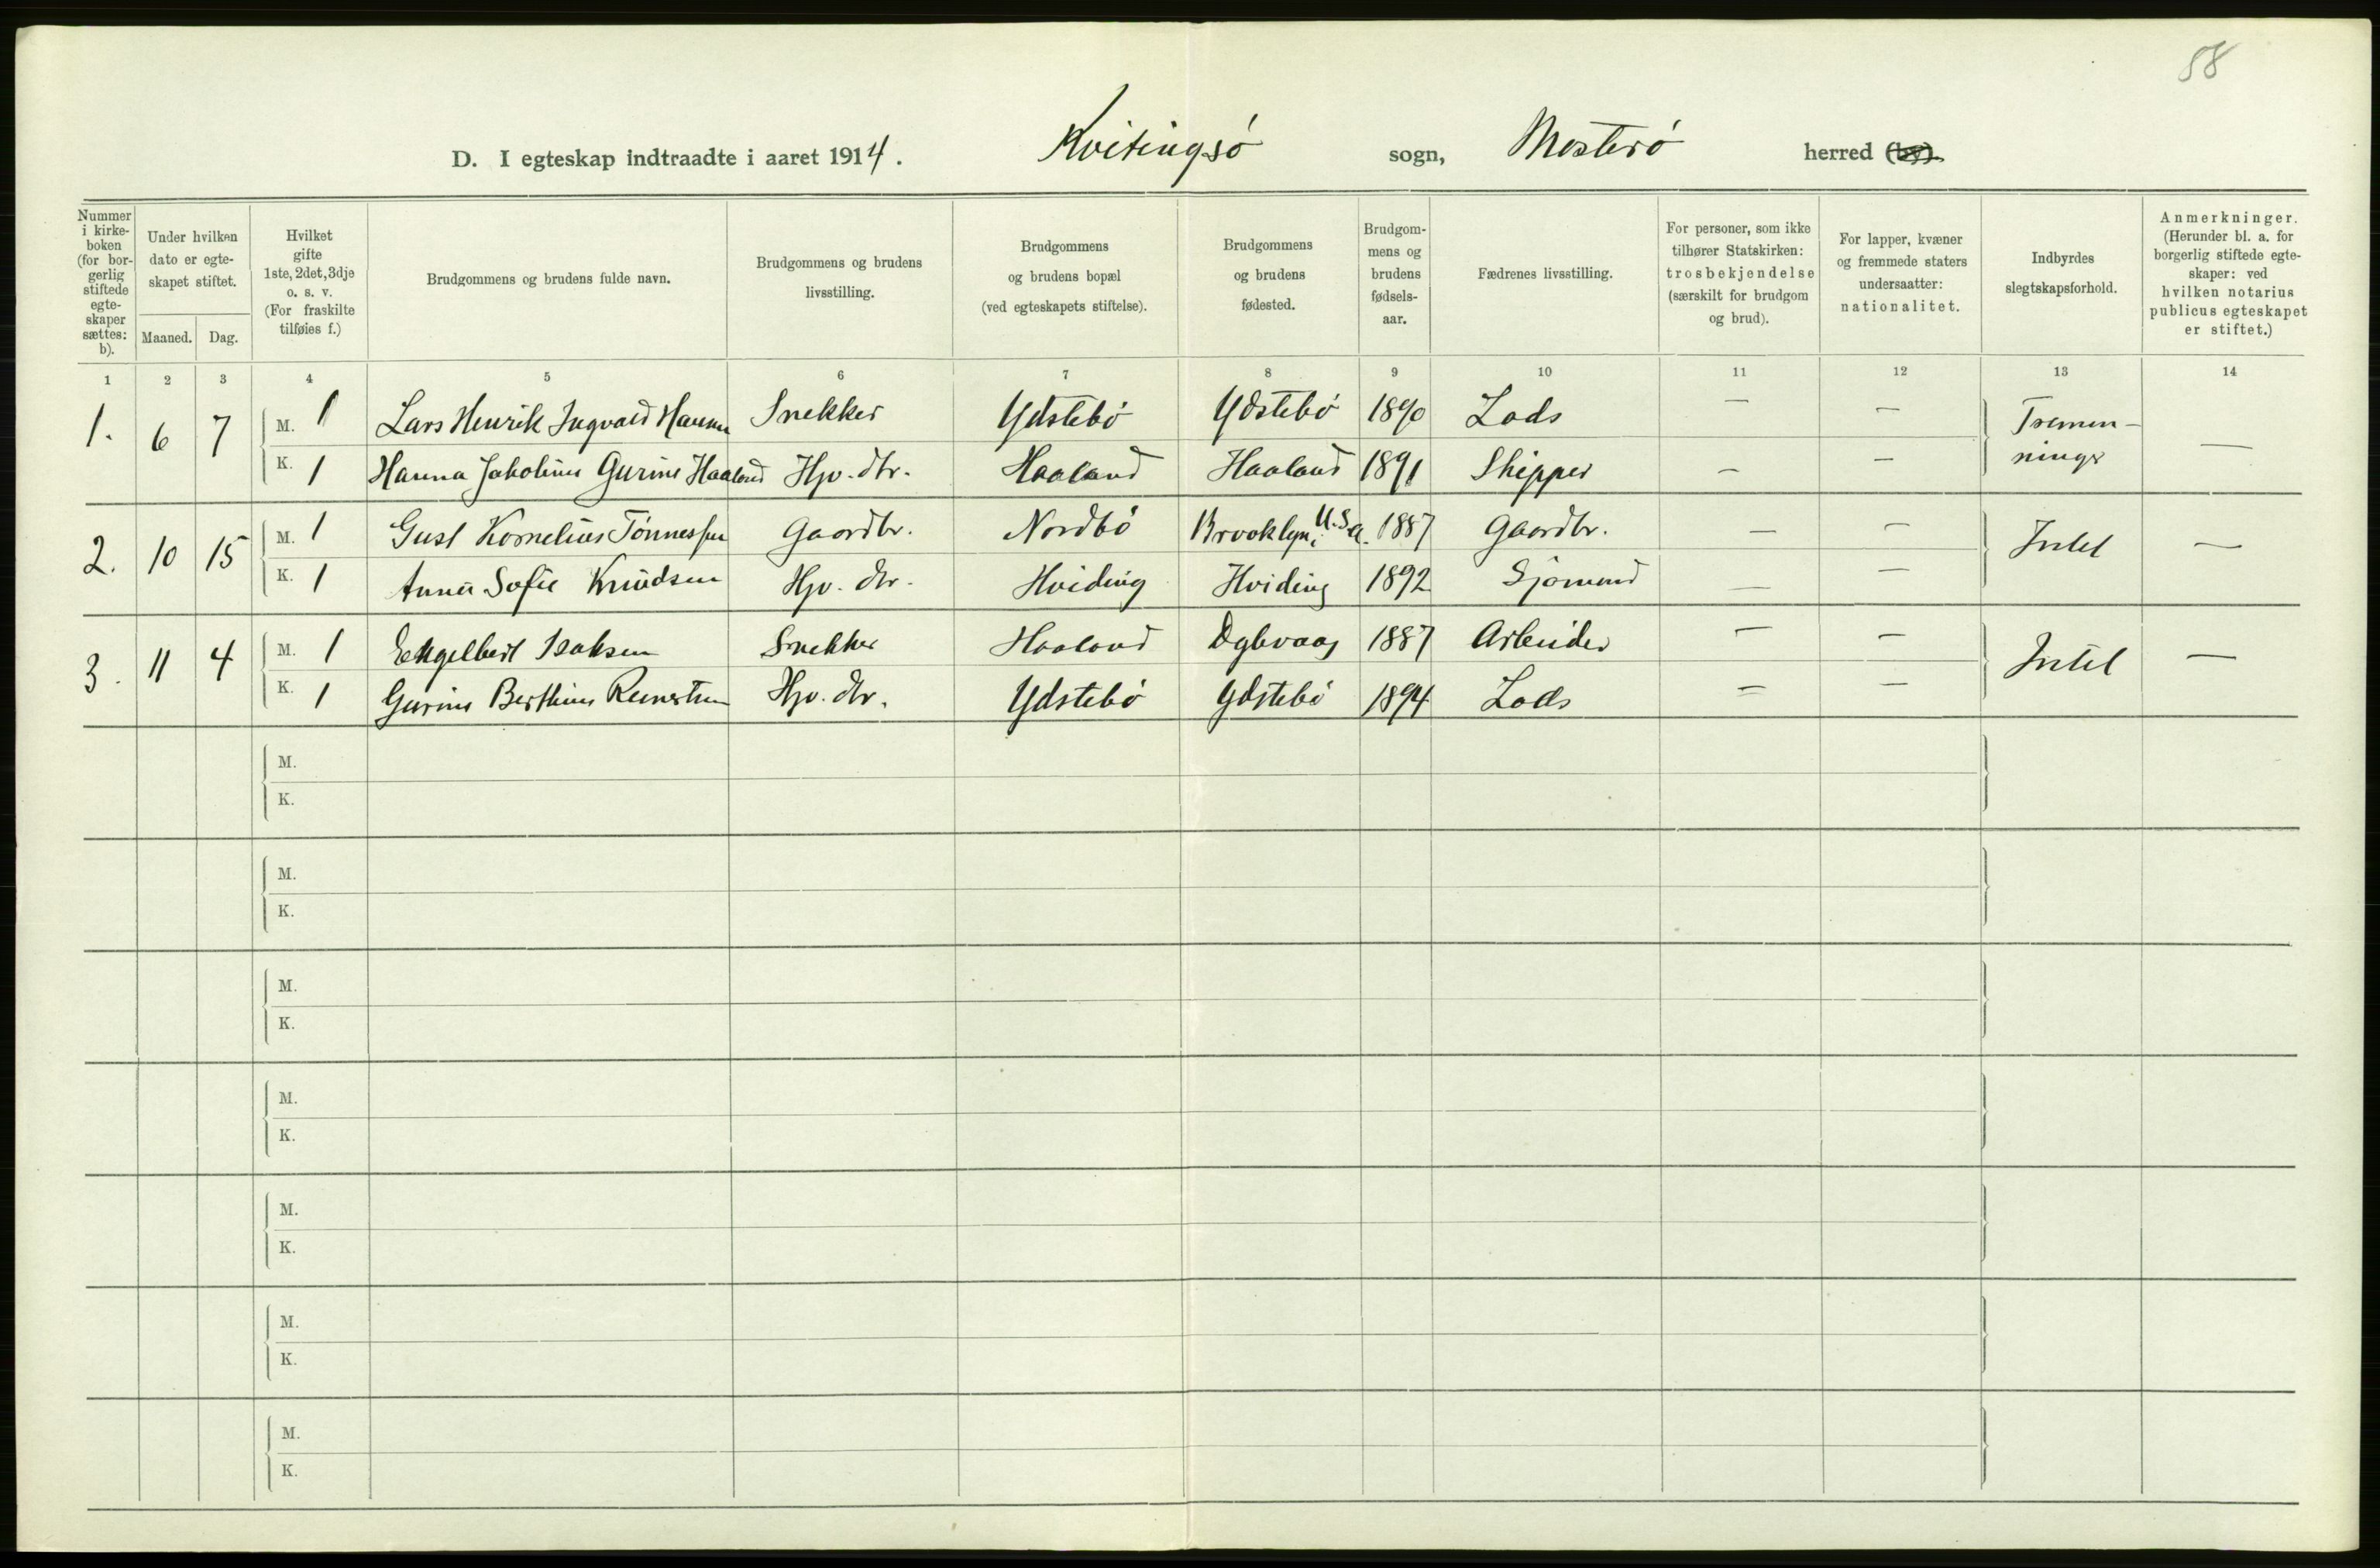 58
D. I egteskap indtraadte i aaret 1914. Kvitingsö sogn, Mosterö herred (by).
Nummer i kirkeboken (for borgerlig stiftede egteskaper sættes: b).
Under hvilken dato er egteskapet stiftet.
Maaned. Dag.
Hvilket gifte 1ste, 2det, 3dje o. s. v. (For fraskilte tilføies f.)
Brudgommens og brudens fulde navn.
Brudgommens og brudens livsstilling.
Brudgommens og brudens bopæl (ved egteskapets stiftelse).
Brudgommens og brudens fødested.
Brudgommens og brudens fødselsaar.
Fædrenes livsstilling.
For personer, som ikke tilhører Statskirken: trosbekjendelse (særskilt for brudgom og brud).
For lapper, kvæner og fremmede staters undersaatter: nationalitet.
Indbyrdes slegtskapsforhold.
Anmerkninger. (Herunder bl. a. for borgerlig stiftede egteskaper: ved hvilken notarius publicus egteskapet er stiftet.)
1 2 3 4 5 6 7 8 9 10 11 12 13 14
1. 6 7 M. 1 Lars Henrik Ingvald Hansen Snekker Ydstebö Ydstebö 1890 Lods — — Tremen-
K. 1 Hanna Jakobine Gurine Haaland Hjv. dtr. Haaland Haaland 1891 Skipper — — ninger —
2. 10 15 M. 1 Gust Kornelius Tönnessen Gaardbr. Nordbö Brooklyn, U.S.A. 1887 Gaardbr. — — Intet —
K. 1 Anna Sofie Knudsen Hjv. dtr. Hviding Hviding 1892 Sjömand — —
3. 11 4 M. 1 Engelbert Isaksen Snekker Haaland Dybvaag 1887 Arbeider — — Intet —
K. 1 Gurine Berthine Reinertsen Hjv. dtr. Ydstebö Ydstebö 1894 Lods — —
M.
K.
M.
K.
M.
K.
M.
K.
M.
K.
M.
K.
M.
K.